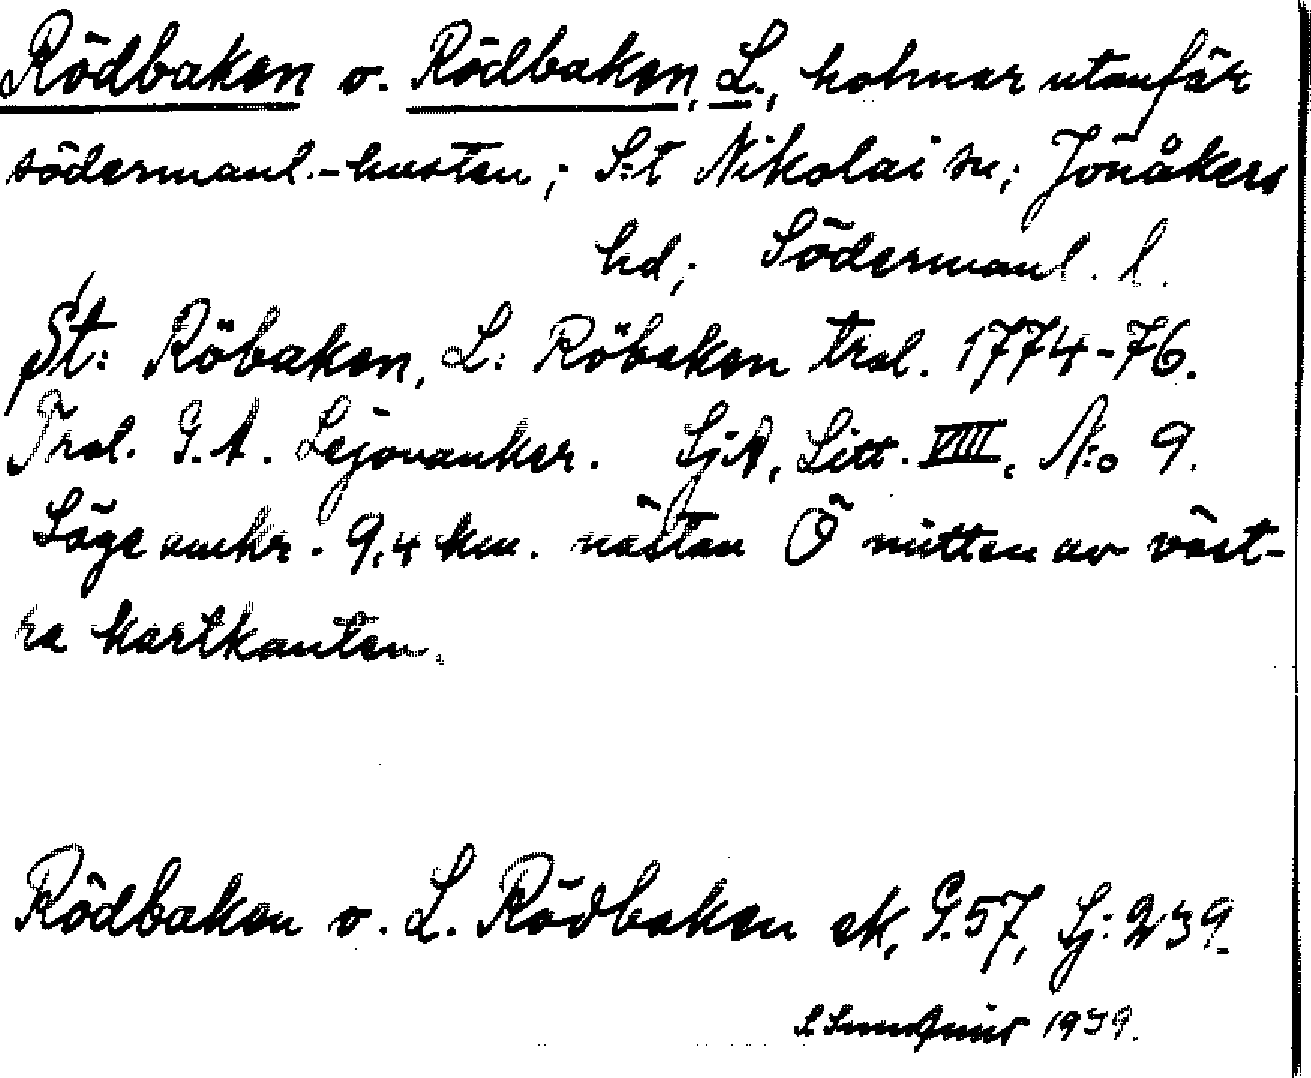 Rödbaken o. Rödbaken, L., holmar utanför
södermanl.-kusten; S:t Nikolai sn; Jönåkers
hd; Södermanl. l.
St: Röbaken, L: Röbaken trol. 1774-76.
Trol. G. A. Lejonanker. SjA, Litt. VIII, N:o 9.
Läge omkr. 9,4 km. nästan Ö mitten av väst-
ra kartkanten.
Rödbaken o. L. Rödbaken ek, G.57, Sj: 239.
1939.